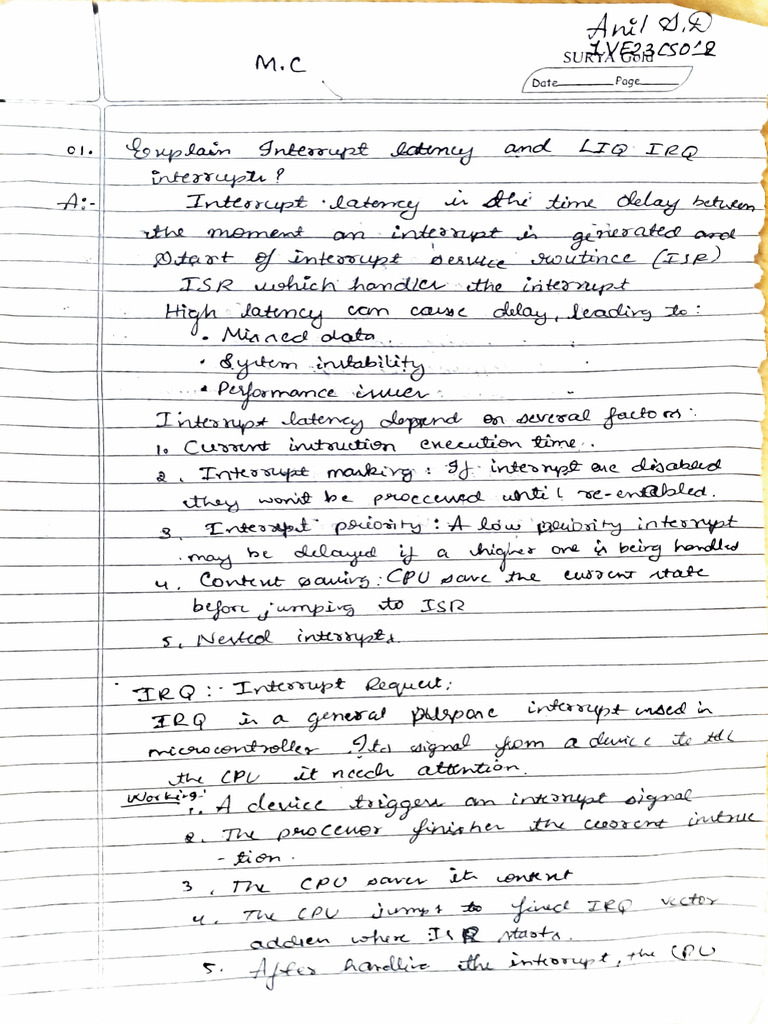 Anil S.D
1VE23CS012
SURYA Gold
M.C
Date Page
01. Explain Interrupt latency and LIQ IRQ
interrupts?
A:- Interrupt latency is the time delay between
the moment an interrupt is generated and
start of interrupt service routince (ISR)
ISR which handler the interrupt
High latency can cause delay, leading to:
• Missed data
• System instability
• Performance issues
Interrupt latency depend on several factors:
1. Current instruction execution time.
2. Interrupt masking: If interrupt are disabled
they won't be processed until re-enabled.
3. Interrupt priority: A low priority interrupt
may be delayed if a higher one is being handled
4. Context saving: CPU save the current state
before jumping to ISR
5. Nested interrupts.
IRQ: Interrupt Request:
IRQ is a general purpose interrupt used in
microcontroller. Its signal from a device to
the CPU it needs attention.
Working:
1. A device triggers an interrupt signal
2. The processor finishes the current instruc
-tion.
3. The CPU saves its context
4. The CPU jumps to fixed IRQ vector
address where ISR starts.
5. After handling the interrupt, the CPU